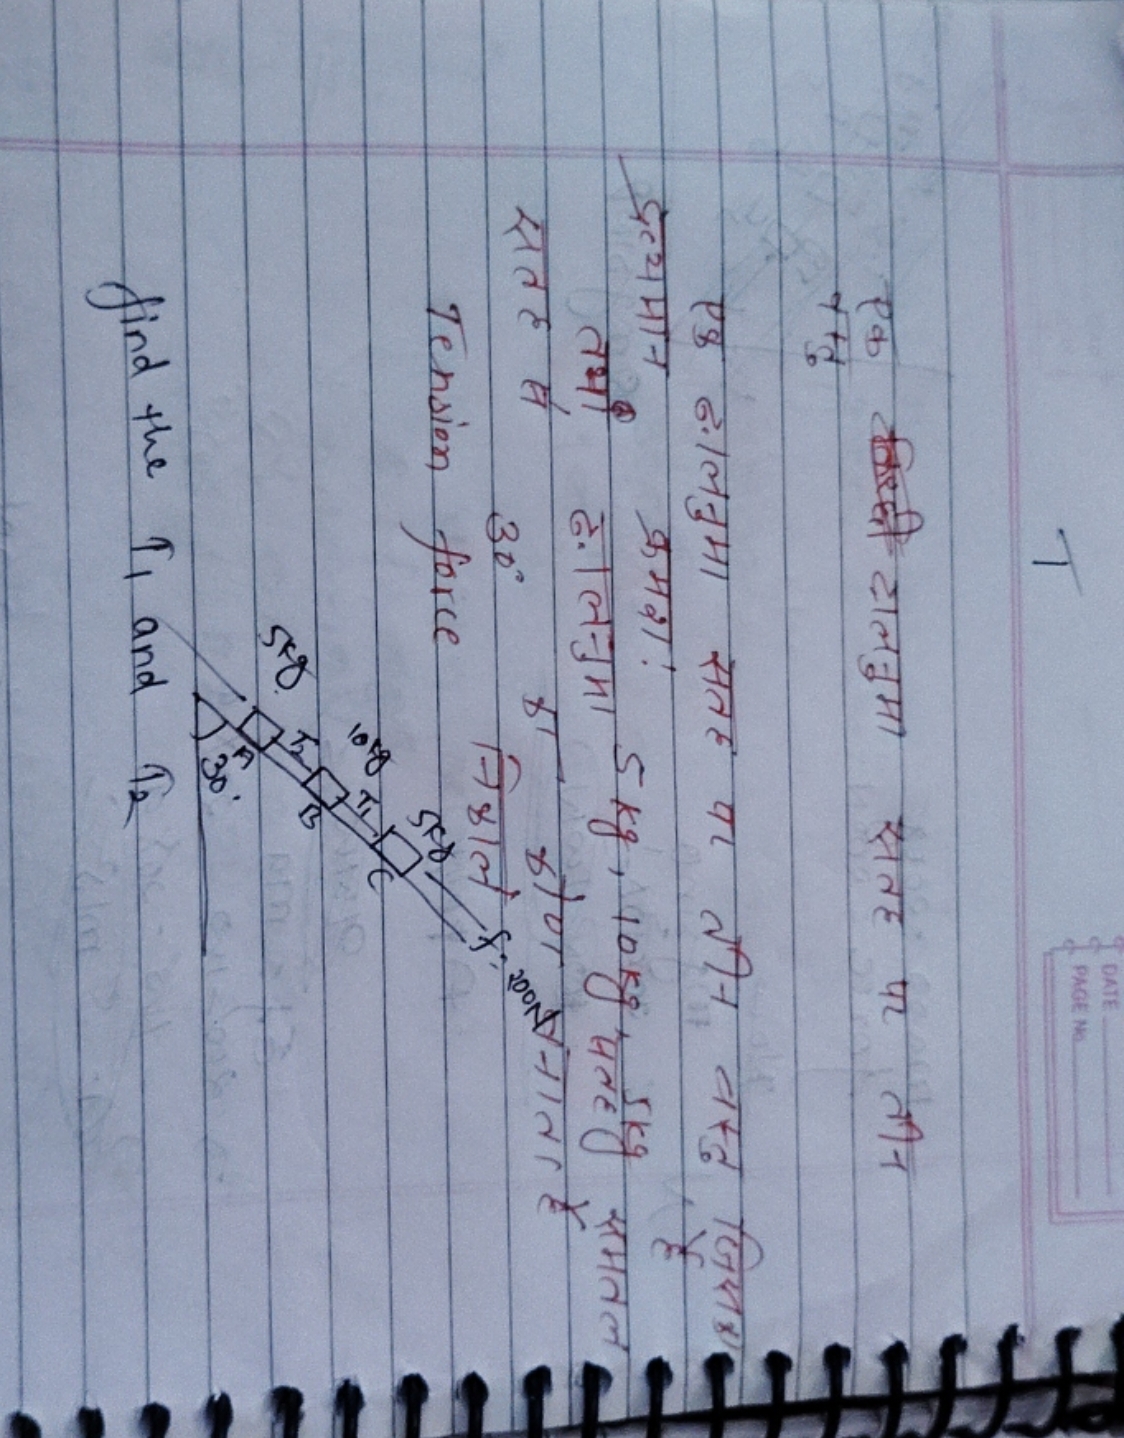 1
DATE
PAGE No.
एक ढालनुमा सतह पर तीन
वस्तु
एक ढालनुमा सतह पर तीन वस्तु जिसका
द्रव्यमान क्रमशः 5 kg, 10kg, 5kg है
तथा ढालनुमा सतह समतल
सतह से 30° का कोण बनाता है
Tension force निकाले
5kg 10kg 5kg F = 200N
A T2 B T1 C
30°
find the T1 and T2